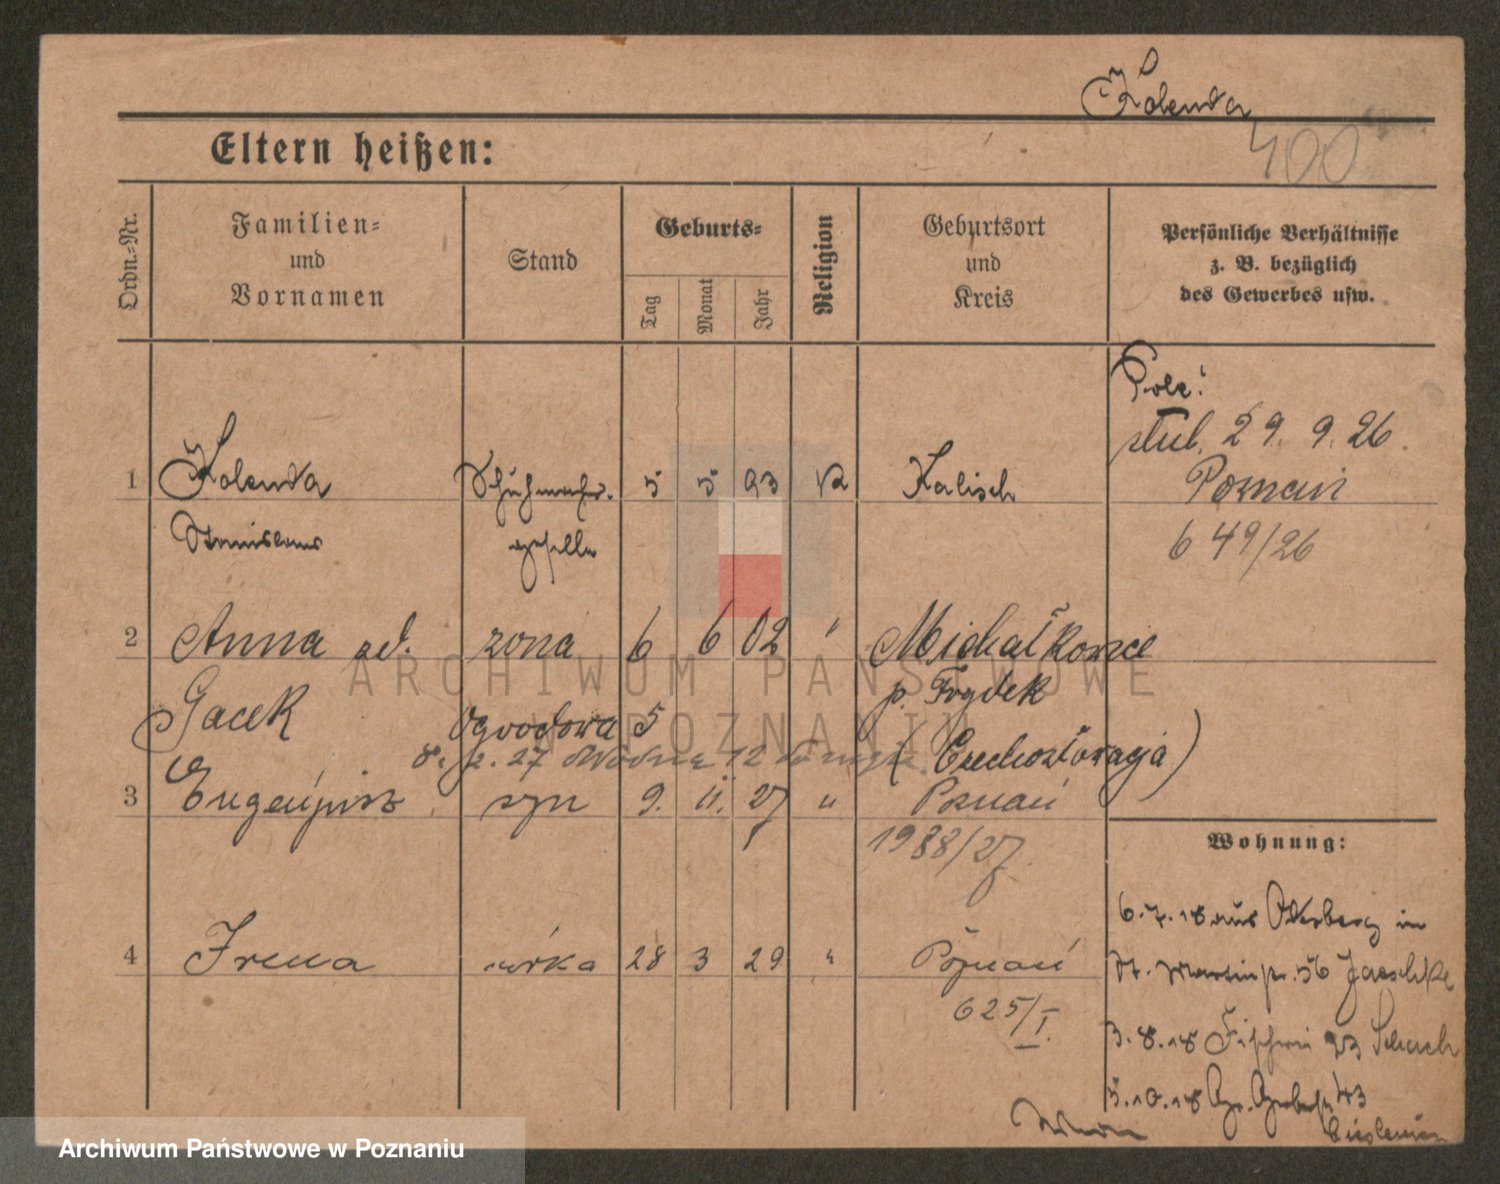 Kolenda
400
Eltern heißen:
Ordn.-Nr.
Familien-
und
Vornamen
Stand
Geburts-
Tag
Monat
Jahr
Religion
Geburtsort
und
Kreis
Persönliche Verhältnisse
z. B. bezüglich
des Gewerbes usw.
Pole!
ślub. 29. 9. 26.
Poznań
649/26
1 Kolenda Schuhmacher- 5 5 93 Kalisch
Stanislaus geselle
2 Anna ur. żona 6 6 02 " Michałkowice
Gacek Ogrodowa 5 p. Frydek
8. 2. 27 Wodna 12 (Czechosłowacja)
3 Eugenjusz syn 9. 11. 27 " Poznań
1988/27
4 Irena córka 28 3 29 " Poznań
625/I.
Wohnung:
6.7.18 aus Oderberg in
St. Martinstr. 56 Jaeschke
3.8.18 Fischerei 23 Schach
5.10.18 Gr. Gerberstr. 43
ARCHIWUM PAŃSTWOWE
W POZNANIU
Archiwum Państwowe w Poznaniu